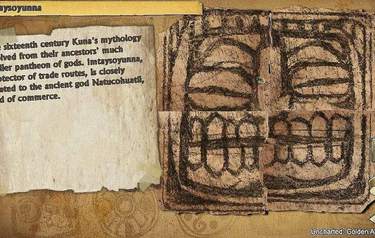 aysoyunna
e sixteenth century Kuna's mythology
olved from their ancestors' much
ller pantheon of gods. Imtaysoyunna,
otector of trade routes, is closely
ated to the ancient god Natucohuatli,
d of commerce.
Uncharted: Golden A